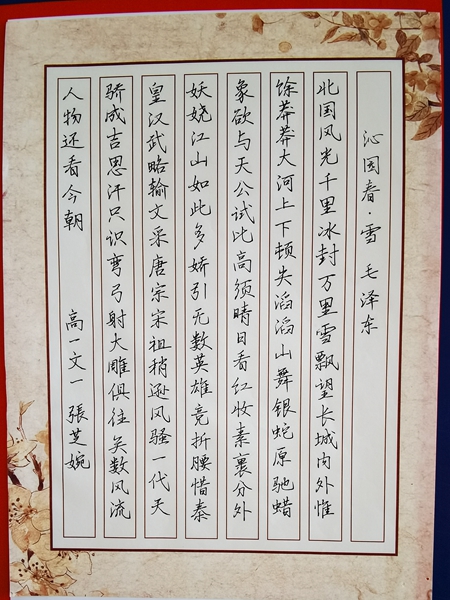 沁园春·雪 毛泽东
北国风光千里冰封万里雪飘望长城内外惟
馀莽莽大河上下顿失滔滔山舞银蛇原驰蜡
象欲与天公试比高须晴日看红妆素裹分外
妖娆江山如此多娇引无数英雄竞折腰惜秦
皇汉武略输文采唐宗宋祖稍逊风骚一代天
骄成吉思汗只识弯弓射大雕俱往矣数风流
人物还看今朝 高一文一 張芝婉